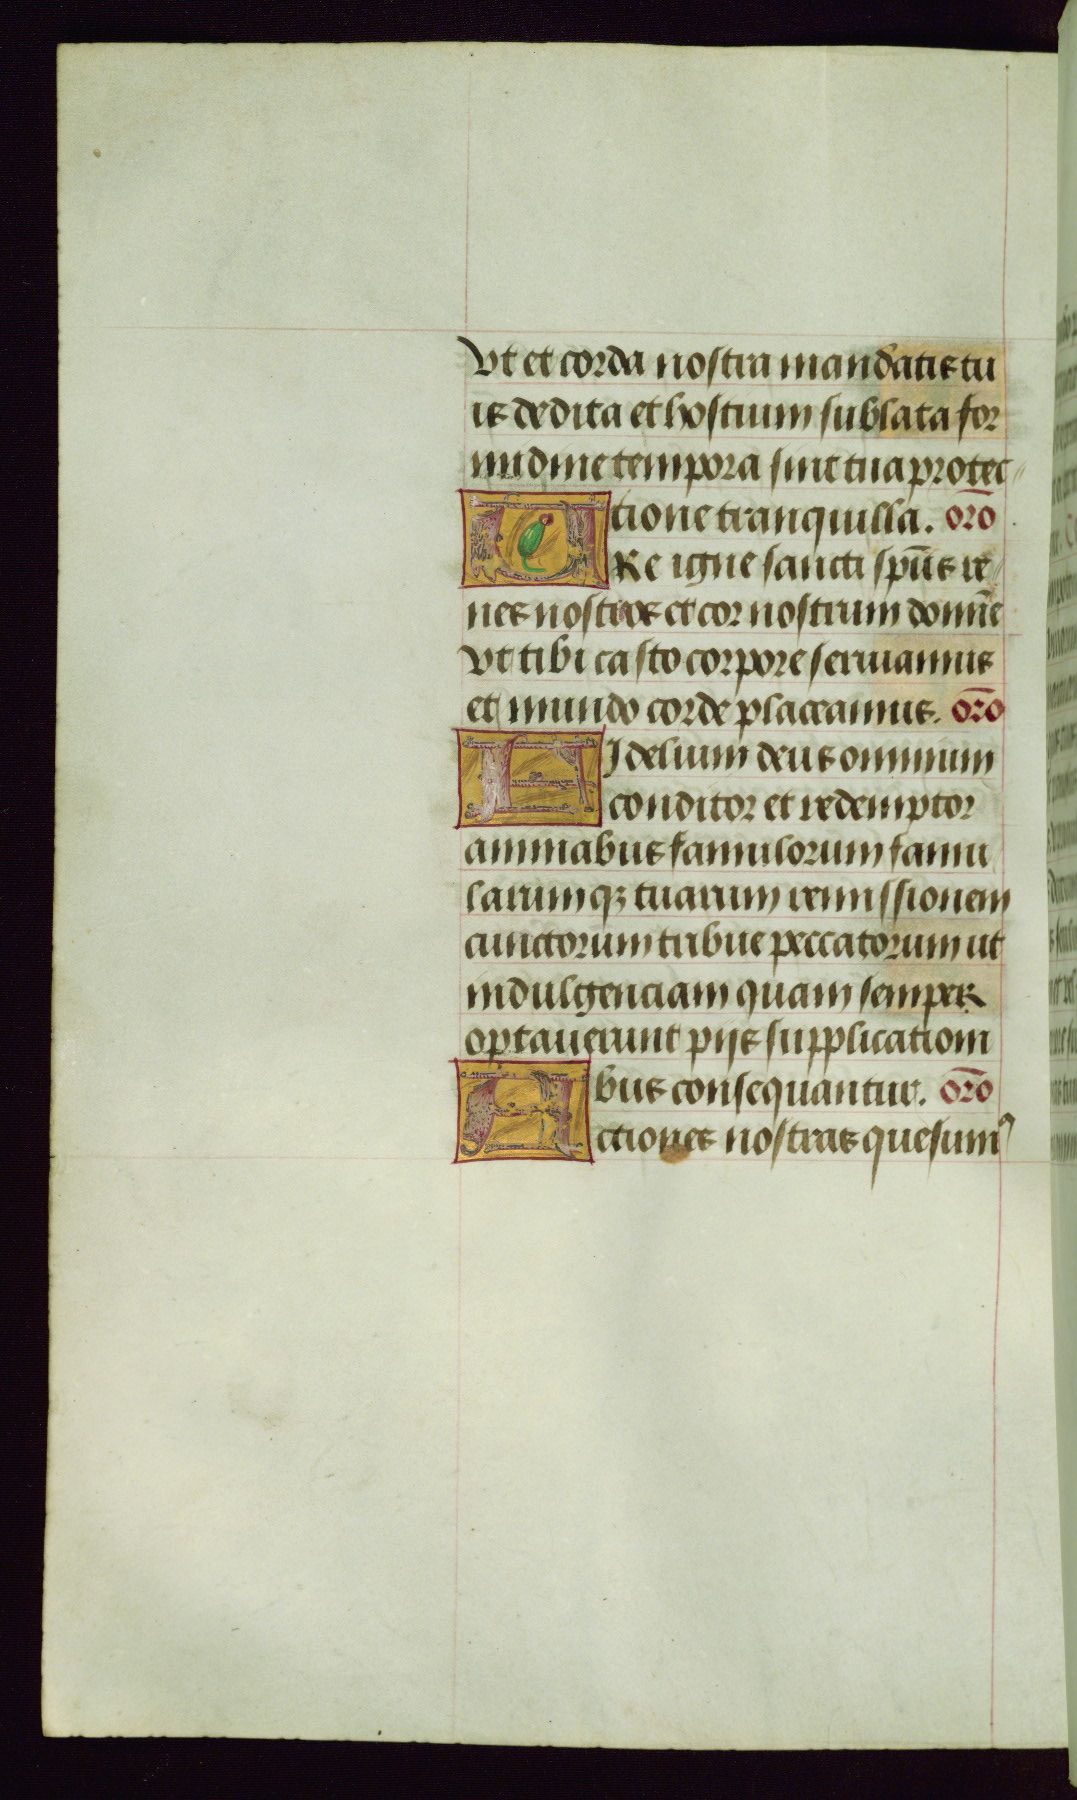 vt et corda nostra mandatis tu
is dedita et hostium sublata for
midine tempora sint tua protec
tione tranquilla. or̄o
VRe igne sancti spūs re
nes nostros et cor nostrum domīe
vt tibi casto corpore seruiamus
et mundo corde placeamus. or̄o
FIdelium deus omnium
conditor et redemptor
animabus famulorum famu
larumqꝫ tuarum remissionem
cunctorum tribue peccatorum ut
indulgenciam quam semper
optauerunt pijs supplicationi
bus consequantur. or̄o
Actiones nostras quesumꝰ